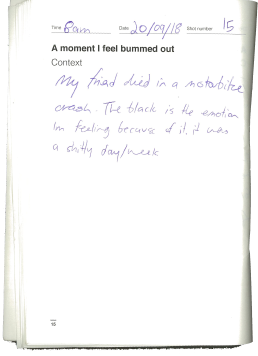 Time 8am Date 20/09/18 Shot number 15
A moment I feel bummed out
Context
My friend died in a motorbike
crash. The black is the emotion
Im feeling because of it. it was
a shitty day/week
15